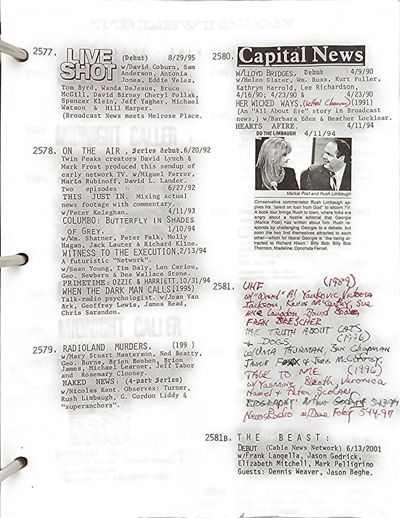 2577.
LIVE
SHOT
(Debut) 8/29/95
w/David Coburn, Sam
Anderson, Antonia
Jones, Eddie Velez,
Tom Byrd, Wanda DeJesus, Bruce
McGill, David Birney Cheryl Pollak,
Spencer Klein, Jeff Yagher, Michael
Watson & Hill Harper.
(Broadcast News meets Melrose Place.
2578. ON THE AIR, Series debut.6/20/92
Twin Peaks creators David Lynch &
Mark Frost produced this sendup of
early network TV. w/Miguel Ferrer,
Marla Rubinoff, David L. Lander,
Two episodes 6/27/92
THIS JUST IN. Mixing actual
news footage with commentary.
w/Peter Keleghan. 4/11/93
COLUMBO: BUTTERFLY IN SHADES
OF GREY. 1/10/94
w/Wm. Shatner, Peter Falk, Molly
Hagan, Jack Lauter & Richard Kline.
WITNESS TO THE EXECUTION.2/13/94
A futuristic "Network".
w/Sean Young, Tim Daly, Len Cariou,
Geo. Newbern & Dee Wallace Stone.
PRIMETIME: OZZIE & HARRIET:10/31/94
WHEN THE DARK MAN CALLS(1995)
Talk-radio psychologist. w/Joan Van
Ark, Geoffrey Lewis, James Read,
Chris Sarandon.
2579. RADIOLAND MURDERS. (199 )
w/Mary Stuart Masterson, Ned Beatty,
Geo. Burns, Brien Benben, Brien
James, Michael Learner, Jeff Tabor
and Rosemary Clooney.
NAKED NEWS: (4-part Series)
w/Nicolas Kent. Observes: Turner,
Rush Limbaugh, G. Gordon Liddy &
"superanchors".
2580.
Capital News
w/LLOYD BRIDGES, Debut 4/9/90
w/Helen Slater, Wm. Russ, Kurt Fuller,
Kathryn Harrold, Lee Richardson,
4/16/90; 4/23/90 & 4/23/90
HER WICKED WAYS. (Lethal Charm) (1991)
(An "All About Eve" story in Broadcast
news.) w/Barbara Eden & Heather Locklear.
HEARTS AFIRE. 4/11/94
DO THE LIMBAUGH 4/11/94
Markie Post and Rush Limbaugh
Conservative commentator Rush Limbaugh ap-
plies his "talent on loan from God" to sitcom TV.
A book tour brings Rush to town, where folks are
angry about a hostile editorial that Georgie
(Markie Post) has written about him. Rush re-
sponds by challenging Georgie to a debate, but
soon the two find themselves attracted to each
other—which for liberal Georgie is "like being at-
tracted to Richard Nixon." Billy Bob: Billy Bob
Thornton. Madeline: Conchata Ferrell.
2581. UHF (1989)
w/"Weird" Al Yankovic, Victoria
Jackson, Kevin McCarthy, Sue
Ane Langdon, David Bowe,
Fran Drescher
THE TRUTH ABOUT CATS
& DOGS (1996)
w/Uma Thurman, Ben Chapman
Jamie Foxx & Jack McCartney
TALKE TO ME (1996)
w/Yasmine Bleeth, Veronica
Hamel & Peter Scolari
BIOGRAPHY: Arthur Godfrey 5-13-97
NewsRadio w/Dave Foley 5-14-97
2581B. THE BEAST:
DEBUT (Cable News Network) 6/13/2001
w/Frank Langella, Jason Gedrick,
Elizabeth Mitchell, Mark Pelligrino
Guests: Dennis Weaver, Jason Beghe,